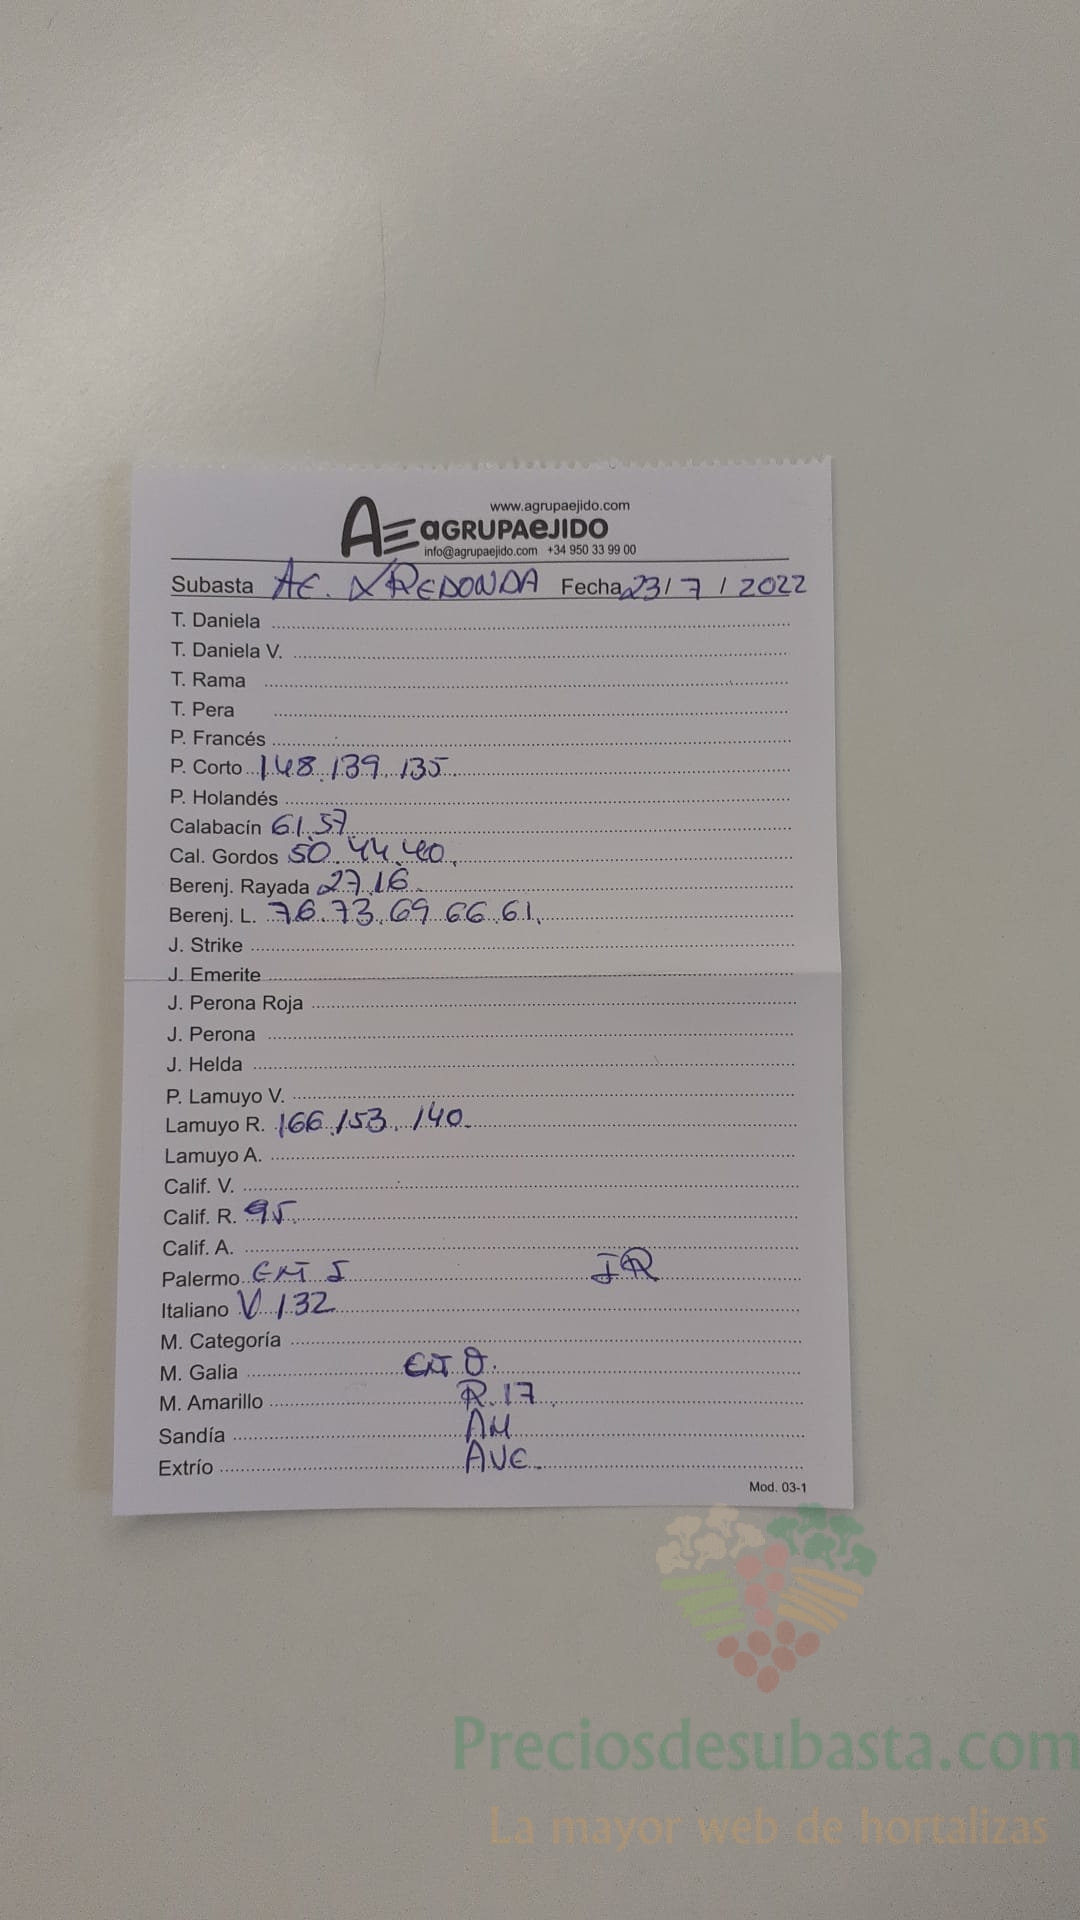 www.agrupaejido.com
AE aGRUPAeJIDO
info@agrupaejido.com +34 950 33 99 00
Subasta AE. REDONDA Fecha 23/7/2022
T. Daniela
T. Daniela V.
T. Rama
T. Pera
P. Francés
P. Corto 148.139.135
P. Holandés
Calabacín 61.57
Cal. Gordos 50.44.40.
Berenj. Rayada 27.16
Berenj. L. 76.73.69.66.61.
J. Strike
J. Emerite
J. Perona Roja
J. Perona
J. Helda
P. Lamuyo V.
Lamuyo R. 166.153.140
Lamuyo A.
Calif. V.
Calif. R. 95
Calif. A.
Palermo
Italiano V 132
M. Categoría
M. Galia
M. Amarillo R.17
Sandía AM
Extrío AVE
Mod. 03-1
Preciosdesubasta.com
La mayor web de hortalizas